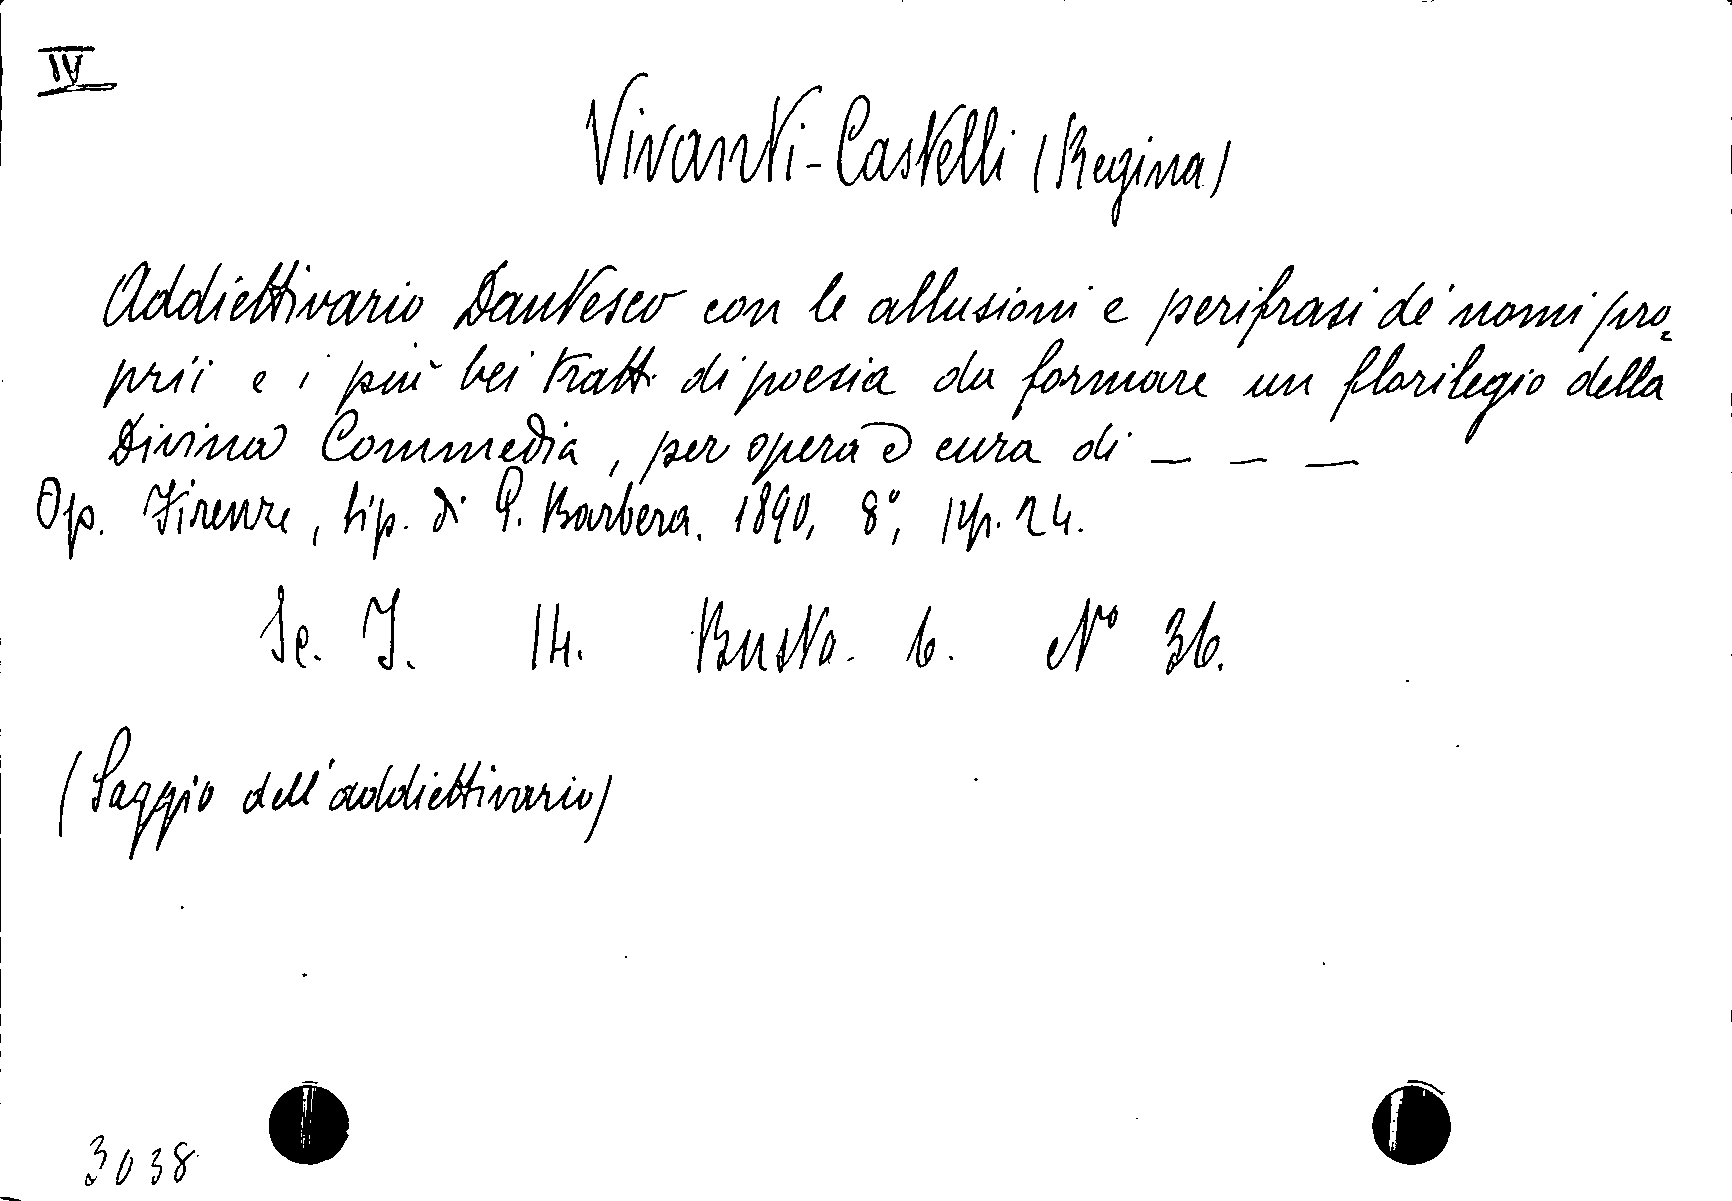 IV
Vivanti-Castelli (Regina)
Addiettivario Dantesco con le allusioni e perifrasi de' nomi pro=
prii e i più bei tratti di poesia da formare un florilegio della
Divina Commedia, per opera e cura di _ _ _
Op. Firenze, tip. di G. Barbera. 1890, 8°, pp. 24.
Sc. I. 14. Busta. 6. N° 36.
(Saggio dell'addiettivario)
3038